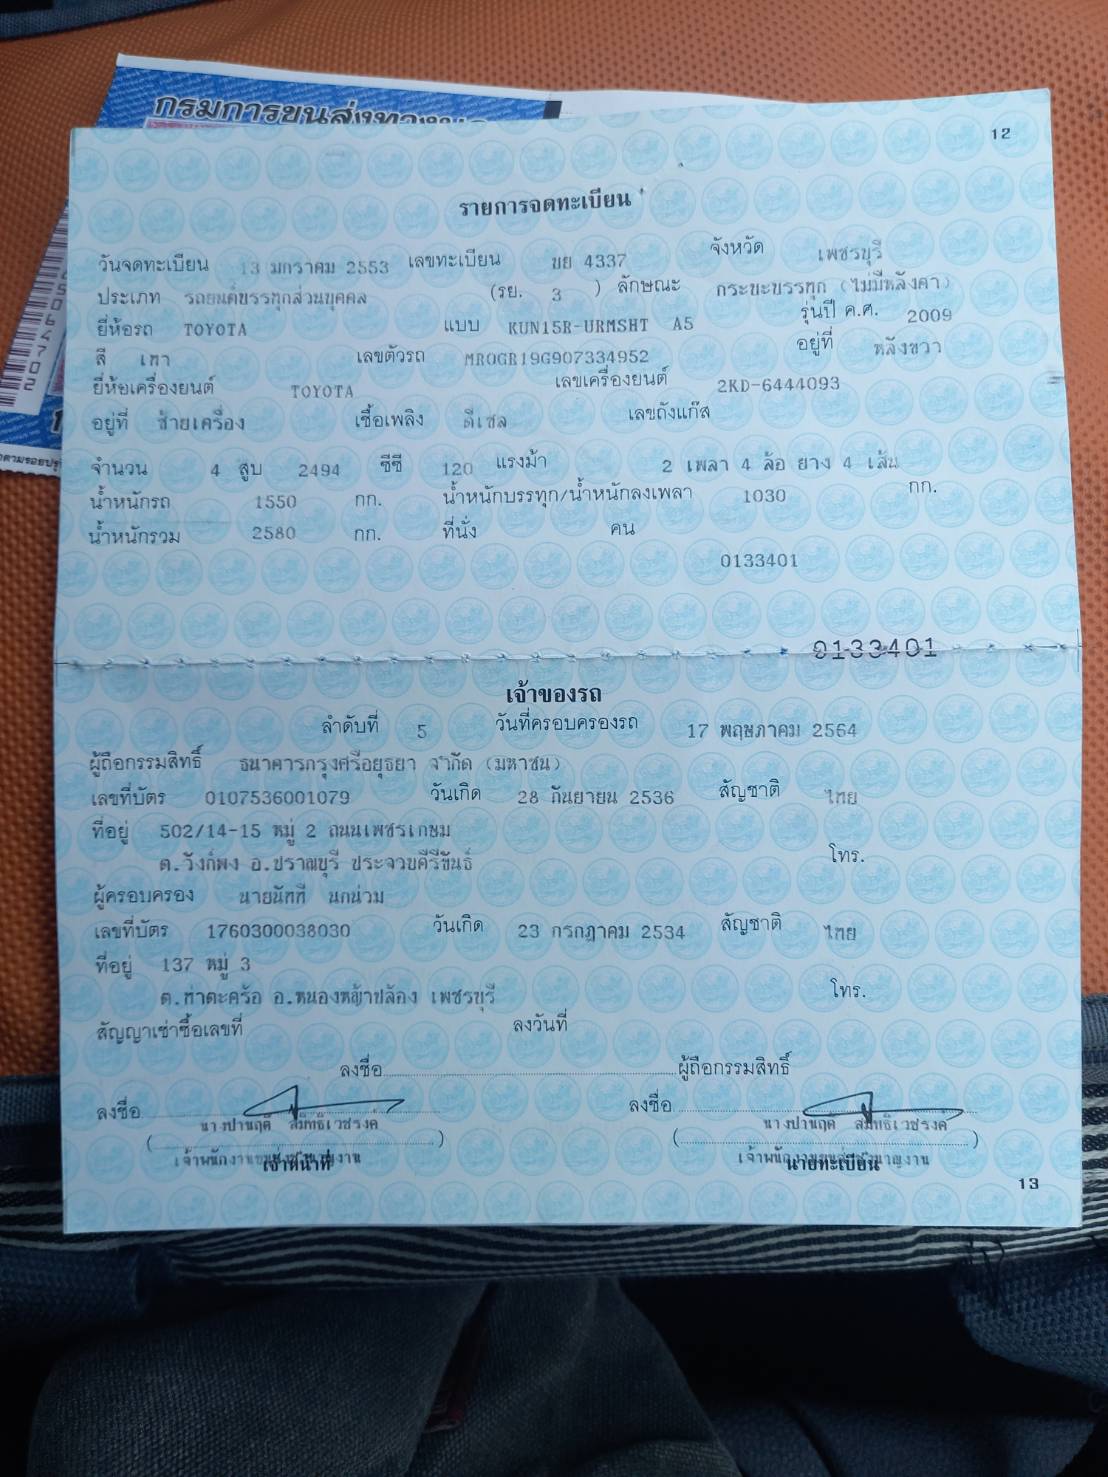 กรมการขนส่งทางบก
12
รายการจดทะเบียน
วันจดทะเบียน 13 มกราคม 2553 เลขทะเบียน บย 4337 จังหวัด เพชรบุรี
ประเภท รถยนต์บรรทุกส่วนบุคคล (รย. 3 ) ลักษณะ กระบะบรรทุก (ไม่มีหลังคา)
ยี่ห้อรถ TOYOTA แบบ KUN15R-URMSHT A5 รุ่นปี ค.ศ. 2009
สี เทา เลขตัวรถ MROGR19G907334952 อยู่ที่ หลังขวา
ยี่ห้อเครื่องยนต์ TOYOTA เลขเครื่องยนต์ 2KD-6444093
อยู่ที่ ซ้ายเครื่อง เชื้อเพลิง ดีเซล เลขถังแก๊ส
จำนวน 4 สูบ 2494 ซีซี 120 แรงม้า 2 เพลา 4 ล้อ ยาง 4 เส้น
น้ำหนักรถ 1550 กก. น้ำหนักบรรทุก/น้ำหนักลงเพลา 1030 กก.
น้ำหนักรวม 2580 กก. ที่นั่ง คน
0133401
0133401
เจ้าของรถ
ลำดับที่ 5 วันที่ครอบครองรถ 17 พฤษภาคม 2564
ผู้ถือกรรมสิทธิ์ ธนาคารกรุงศรีอยุธยา จำกัด (มหาชน)
เลขที่บัตร 0107536001079 วันเกิด 28 กันยายน 2536 สัญชาติ ไทย
ที่อยู่ 502/14-15 หมู่ 2 ถนนเพชรเกษม
ต.วังก์พง อ.ปราณบุรี ประจวบคีรีขันธ์ โทร.
ผู้ครอบครอง นายนัทที นกน่วม
เลขที่บัตร 1760300038030 วันเกิด 23 กรกฎาคม 2534 สัญชาติ ไทย
ที่อยู่ 137 หมู่ 3
ต.ท่าตะคร้อ อ.หนองหญ้าปล้อง เพชรบุรี โทร.
สัญญาเช่าซื้อเลขที่ ลงวันที่
ลงชื่อ ผู้ถือกรรมสิทธิ์
ลงชื่อ ลงชื่อ
เจ้าหน้าที่ นายทะเบียน
13